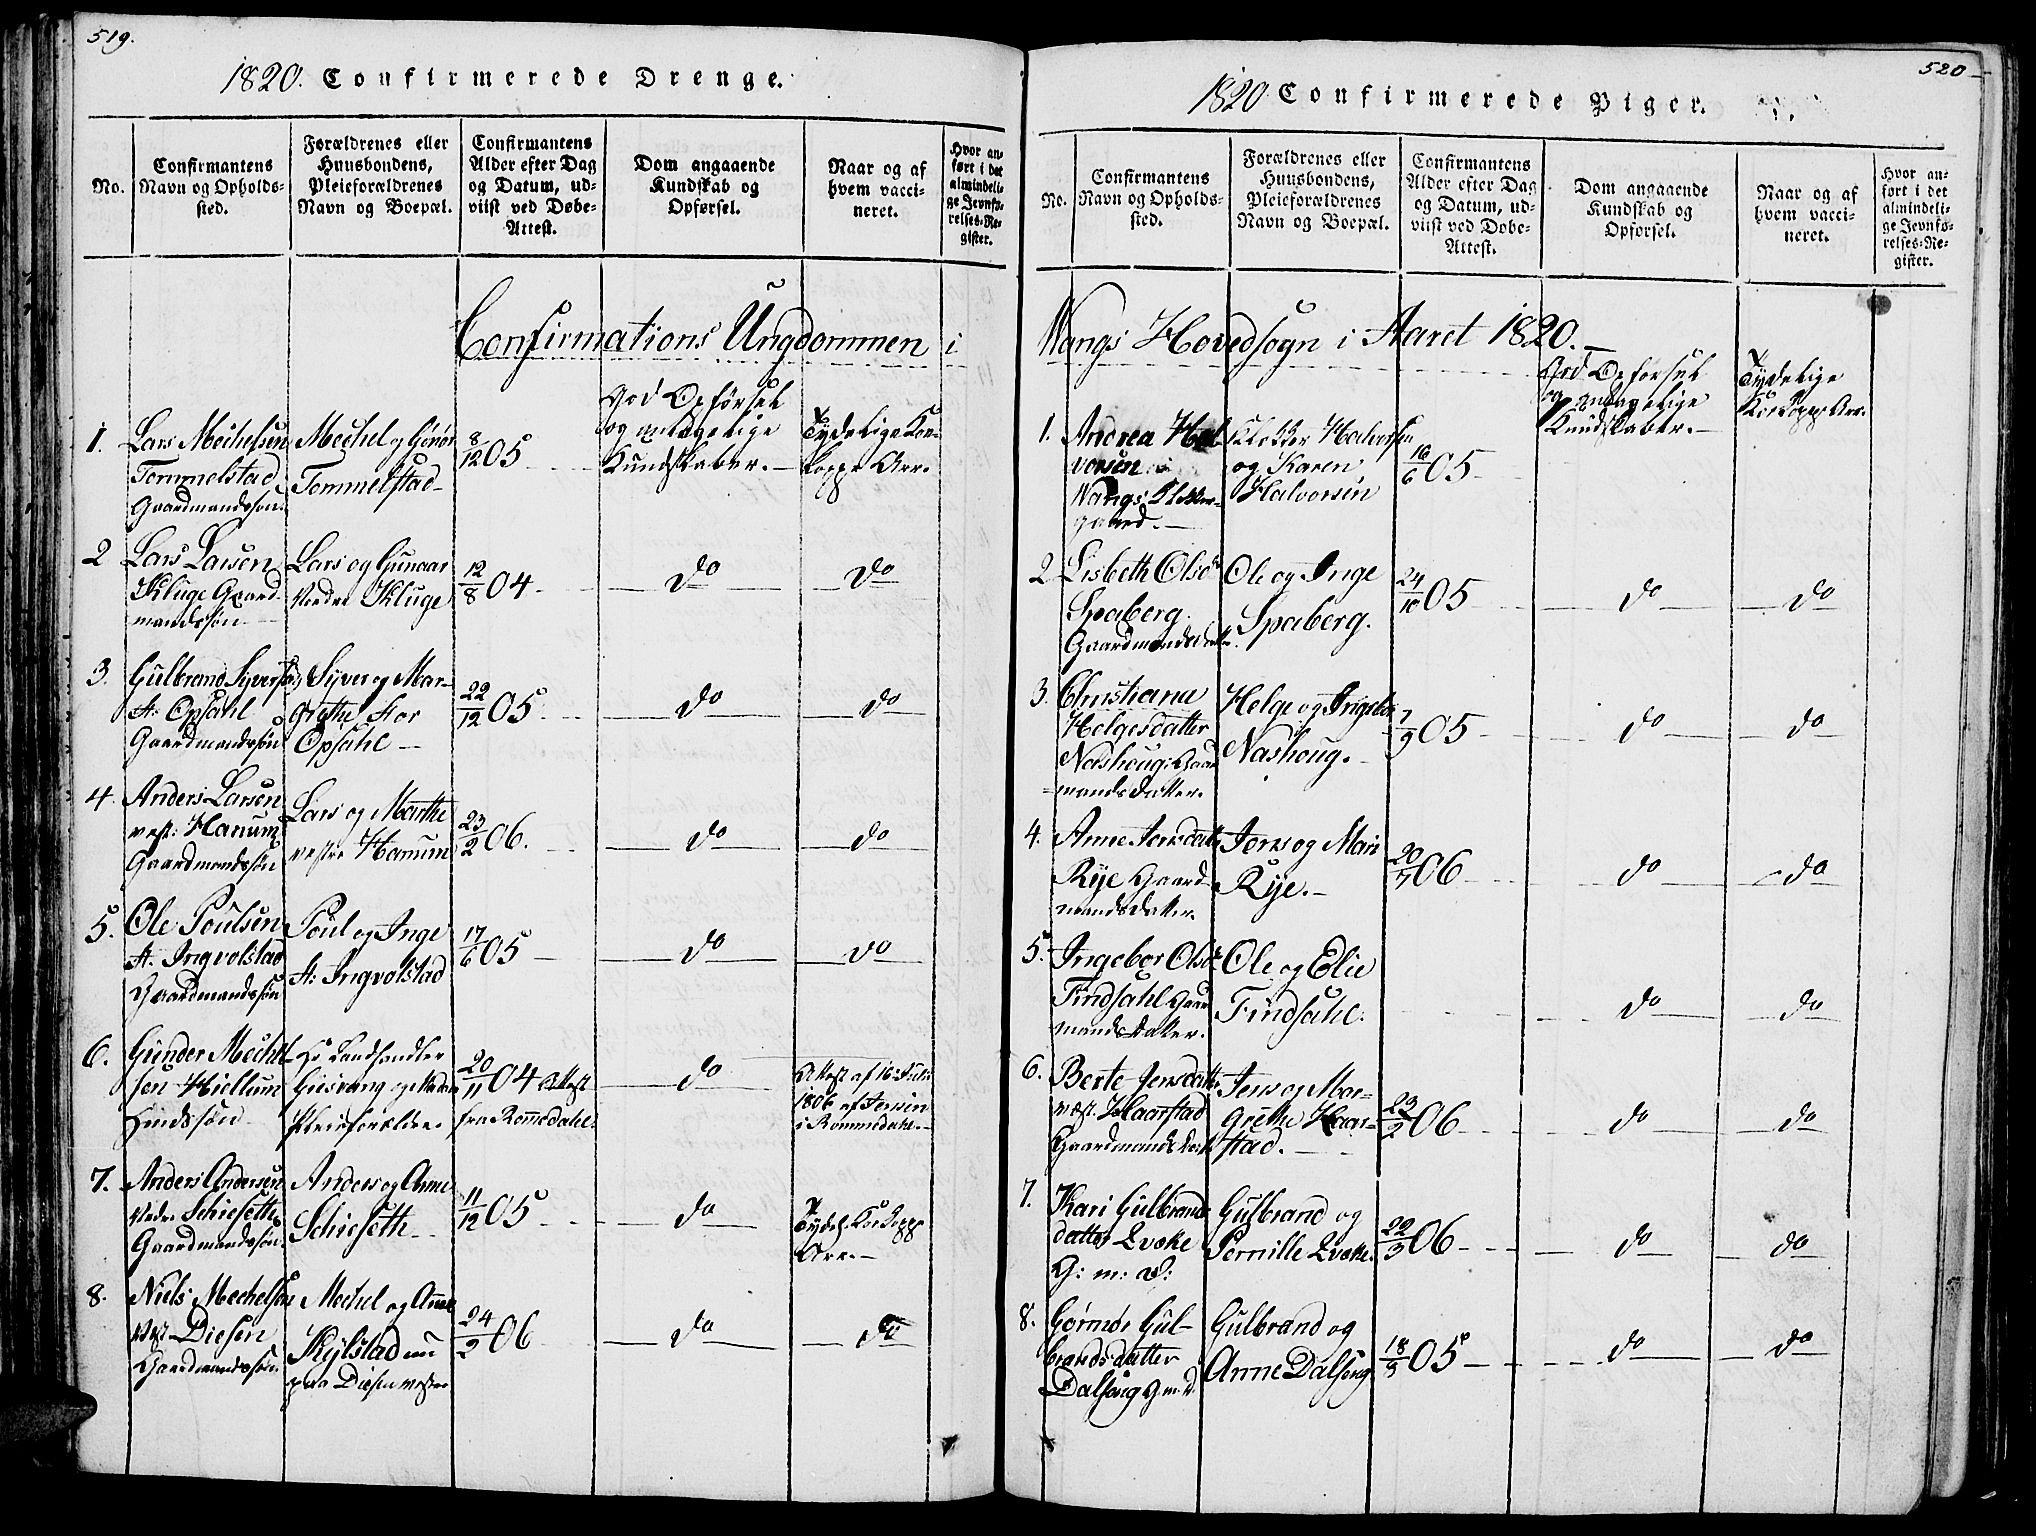 519.
1820. Confirmerede Drenge.
No.
Confirmantens
Navn og Opholds-
sted.
Forældrenes eller
Huusbondens,
Pleieforældrenes
Navn og Boepæl.
Confirmantens
Alder efter Dag
og Datum, ud-
viist ved Døbe-
Attest.
Dom angaaende
Kundskab og
Opførsel.
Naar og af
hvem vacci-
neret.
Hvor an-
ført i det
almindeli-
ge Jevnfø-
relses-Re-
gister.
Confirmations Ungdommen i
1.
Lars Mechelsen
Tommelstad
Gaardmandssøn.
Mechel og Gønor
Tommelstad
8/12 05
God Opførsel
og antagelige
Kundskaber.
Tydelige Koe-
koppe Arr.
2
Lars Larsen
Kluge Gaard-
mandssøn
Lars og Gunaar
Nedre Kluge
12/8 04
do
do
3.
Gulbrand Syversøn
St: Opsahl
Gaardmandssøn
Syver og Mar-
grethe Stor
Opsahl
22/12 05
do
do
4.
Anders Larsen
vest: Hanum
Gaardmandssøn
Lars og Marthe
vestre Hanum
23/2 06.
do
do
5.
Ole Poulsen
St: Ingvolstad
Gaardmandssøn
Poul og Inge
St: Ingvolstad
17/6 05
do
do
6.
Gunder Mechel-
sen Hiellum
Hr Landhandler
Pleieforældre.
20/11 04 Attest
fra Romedahl.
do
Attest af 16 Juli
1806 af Jensen
i Rommedahl.
7.
Anders Andersen
Nedre Schieseth
Gaardmandssøn.
Anders og Anne
Schieseth
11/12 05
do
Tydel. Koekopp
Arr.
8.
Niels Mechelsøn
Vest Diesen
Gaardmandssøn.
Mechel og Anne
Kylstad nu
paa Diesen vestre
24/2 06
do
do
520
1820 Confirmerede Piger.
No.
Confirmantens
Navn og Opholds-
sted.
Forældrenes eller
Huusbondens,
Pleieforældrenes
Navn og Boepæl.
Confirmantens
Alder efter Dag
og Datum, ud-
viist ved Døbe-
Attest.
Dom angaaende
Kundskab og
Opførsel.
Naar og af
hvem vacci-
neret.
Hvor an-
ført i det
almindeli-
ge Jevnfø-
relses-Re-
gister.
Wangs Hovedsogn i Aaret 1820.
1.
Andrea Hal-
vorsen
Wangs Klokker-
gaard.
Klokker Halvorsen
og Karen
Halvorsen
16/6 05
God Opførsel
og antagelige
Kundskaber.
Tydelige
Koekoppe Arr.
2
Lisbeth Olsdr
Spaberg.
Gaardmandsdatter.
Ole og Inge
Spaberg.
24/10 05
do
do
3.
Christiana
Helgesdatter
Nashoug Gaard-
mandsdatter.
Helge og Ingebor
Nashoug.
7/9 05
do
do
4.
Anne Jensdatter
Rye Gaard-
mandsdatter.
Jens og Mari
Rye.
20/7 06
do
do
5.
Ingebor Olsdr
Findsahl Gaard-
mandsdatter.
Ole og Elie
Findsahl.
do
do
6.
Berte Jensdatter
vest. Haarstad
Gaardmandsdatter
Jens og Mar-
grethe Haar-
stad.
23/2 06
do
do
7.
Kari Gulbrands-
datter Qvæke
G: m: D:
Gulbrand og
Pernille Qvæke.
22/3 06
do
do
8.
Gønnor Gul-
brandsdatter
Dalseng G m. D.
Gulbrand og
Anne Dalseng
18/9 05
do
do